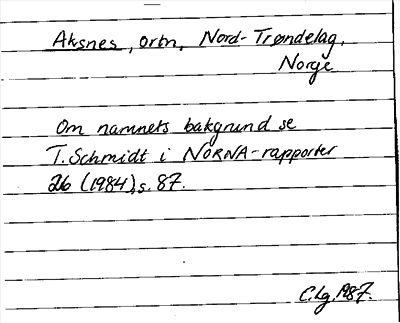 Aksnes, ortn, Nord-Trøndelag,
Norge
Om namnets bakgrund se
T. Schmidt i NORNA-rapporter
26 (1984), s. 87.
C.Lg. 1987.